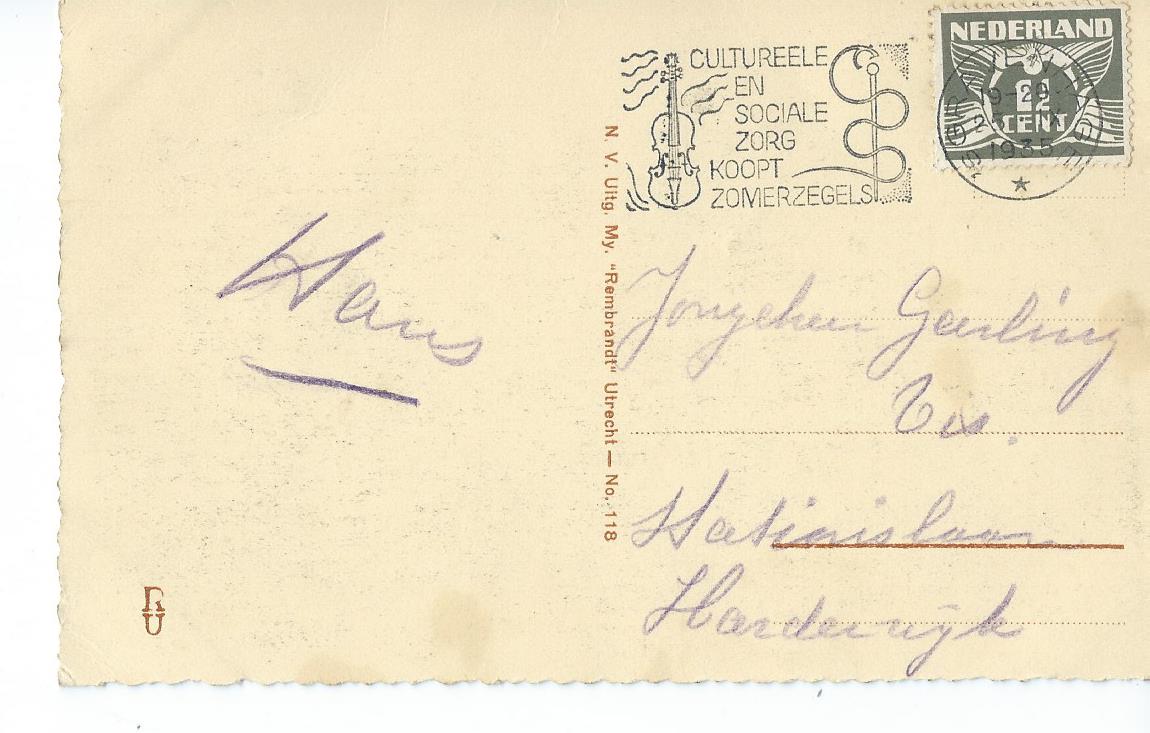 NEDERLAND
1½
CENT
'S GRAVENHAGE
19-20
1935
CULTUREELE
EN
SOCIALE
ZORG
KOOPT
ZOMERZEGELS
N. V. Uitg. My. "Rembrandt" Utrecht — No. 118
Hans
Jongeheer Geerling
Stationslaan
Harderwijk
RU